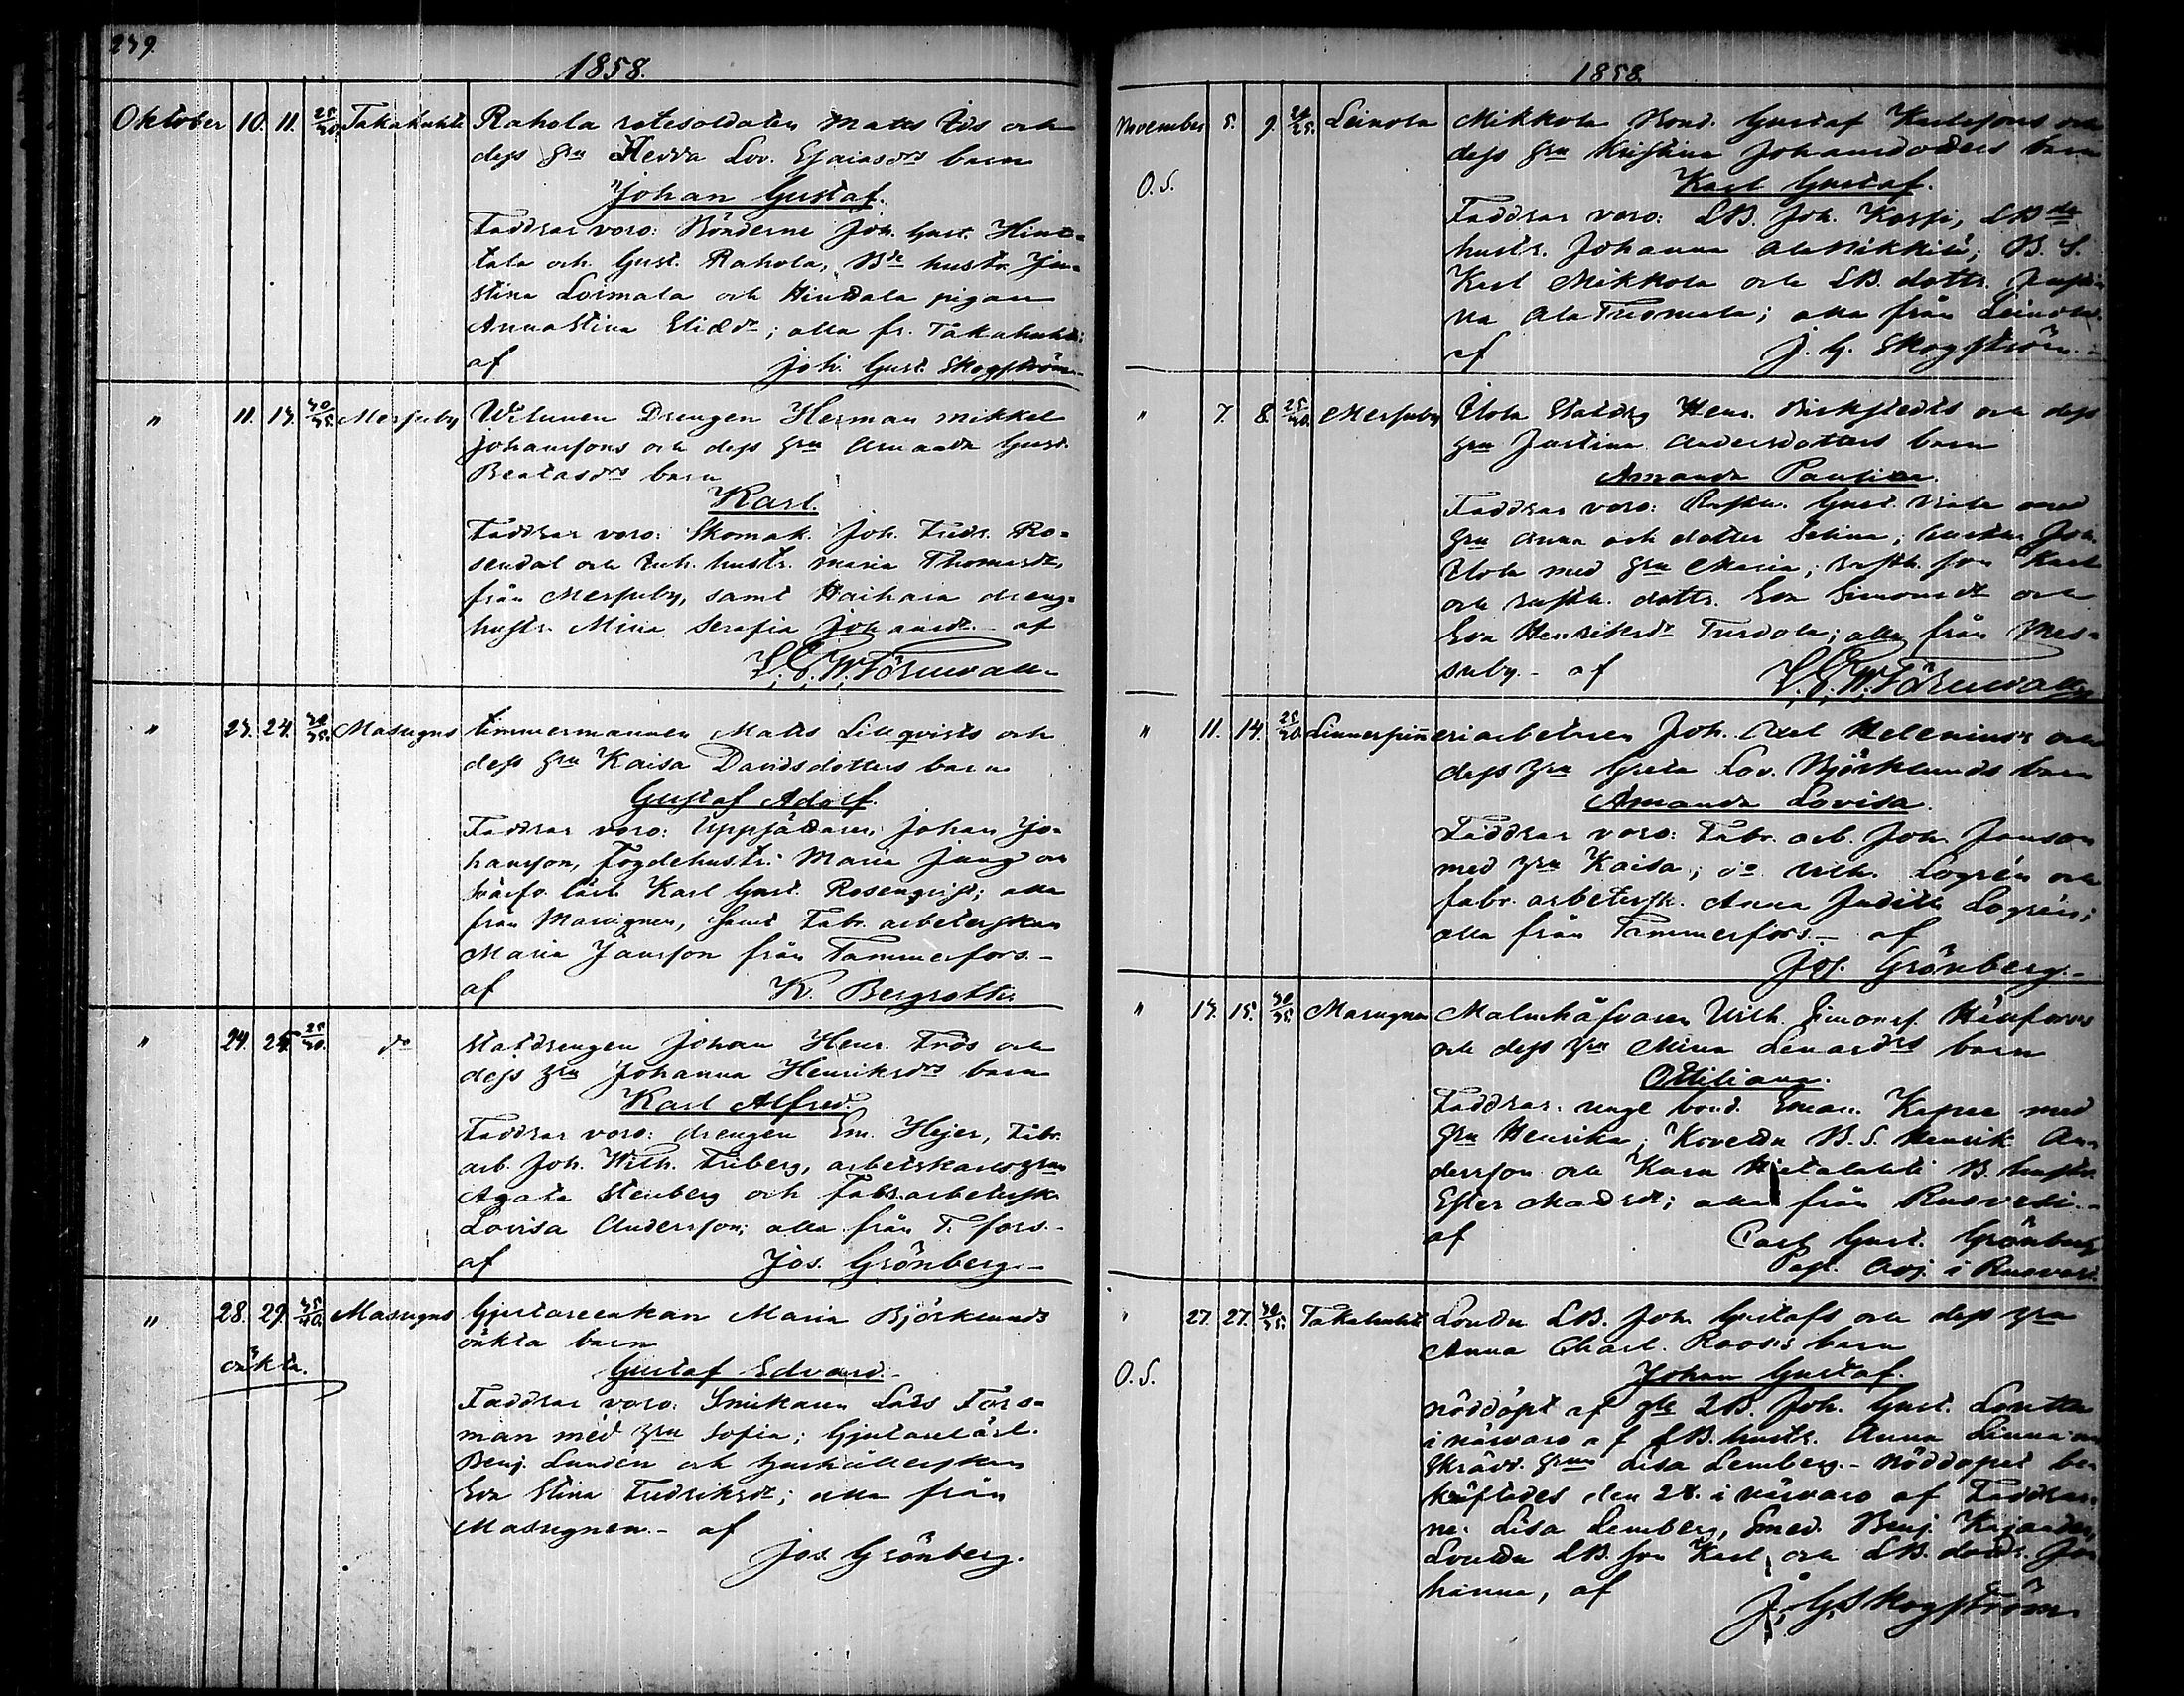 239.
1858.
Oktober 10. 11. 25/30. Takahuhti Rahola rotesoldaten Matts Ids och
dess hru Hedda Lov. Esaiasdrs barn
Johan Gustaf.
Faddrar voro: Bönderne Joh. Gust. Hint-
tala och Gust. Rahola, Bde hustr. Ju-
stina Loimala och Hindala pigan
Anna Stina Eliædr; alla fr. Takahuhti.
af Joh. Gust. Skogström
" 11. 17. 30/35. Messuby Drengen Herman Mikkel
Johanssons och dess hru Amanda Gust.
Beatasdrs barn
Karl.
Faddrar voro: Skomak. Joh. Fredr. Ro-
sendal och Inh. hustr. Maria Thomasdr,
från Messuby, samt Haihara dreng-
hustr. Mina Serafia Johansdr. - af
L. G. W. Törnvall
" 23. 24. 30/35. Masugns timmermannen Matts Lillqvists och
dess hru Kaisa Davidsdotters barn
Gustaf Adolf.
Faddrar voro: Uppsådaren Johan Jo-
hansson, fogdehustr. Maria Jung och
lärl. Karl Gust. Rosenqvist; alla
från Masugnen, samt Fabr. arbeterskan
Maria Jansson från Tammerfors. -
af K. Bergroth
" 24. 25. 25/30. do Statdrengen Johan Henr. Frös och
dess hru Johanna Henriksdrs barn
Karl Alfred.
Faddrar voro: drengen Em. Hejer, Fabr.
arb. Joh. Wilh. Friberg, arbetskarlshrun
Agata Stenberg och Fabr. arbetersk.
Lovisa Andersson; alla från T. fors. -
af Jos. Grönberg. -
" 28. 29. 35/40. Masugns Gjutareenkan Maria Björklunds
oäkta. oäkta barn
Gustaf Edvard. -
Faddrar voro: Snickaren Lars Fors-
man med hru Sofia; Gjutarelärl.
Benj. Lundén och hushållerskan
Eva Stina Fredriksdr; alla från
Masugnen. - af
Jos. Grönberg.
1858.
November 5. 9. 20/25. Leinola Mikkola Bond. Gustaf Karlssons och
dess hru Kristina Johansdotters barn
O.S. Karl Gustaf.
Faddrar voro: LB. Joh. Kaspi, LBde
hustr. Johanna Ala Mikkilä; B. S.
Karl Mikkola och LB. dottr. Justi-
na Ala Tuomala; alla från Leinola.
af J. G. Skogström. -
" 7. 8. 25/30. Messuby Ylola Statdrg Henr. Birkstedts och dess
hru Justina Andersdotters barn
Amanda Paulina.
Faddrar voro: Rusth. Gust. Viala med
hru Anna och dotter Selina; Joh.
Ylola med hru Maria; rusth. son Karl
och rusth. dottr. Eva Simonsdr och
Eva Henriksdr Turdola; alla från Mes-
suby. - af L. G. W. Törnvall
" 11. 14. 25/30. Linnespinneriarbetaren Joh. Axel Helenius's och
dess hru Greta Lov. Björklunds barn
Amanda Lovisa.
Faddrar voro: Fabr. arb. Joh. Janson
med hru Kaisa; do Wilh. Logrén och
fabr. arbetersk. Anna Judith Logrén;
alla från Tammerfors. - af
Jos. Grönberg. -
" 13. 15. 30/35. Masugnen Malmhäfvaren Wilh. Simonsf. Hänfors's
och dess hru Mina Lenardrs barn
Ottiliana.
Faddrar: unge bond. Eman. Kapee med
hru Henrika; Koveldu B. S. Henrik An-
dersson och Kara Hietalahti B. hustr.
Ester Madsdr; alla från Ruovesi. -
af Carl Gust. Grönberg
Past. Adj. i Ruovesi.
" 27. 27. 30/35. Takahuht Loutdu LB. Joh. Gustafs och dess hru
Anna Charl. Roos's barn
O.S. Johan Gustaf.
nöddöpt af gle LB. Joh. Gust. Loutta
i närvaro af LB. hustr. Anna Linna och
Skrädd. hrun Lisa Lemberg. - Nöddopet be-
kräftades den 28. i närvaro af Faddrar-
ne: Lisa Lemberg, Smed. Benj. Kajander,
Loutdu LB. son Karl och LB. dottr. Jo-
hanna, af
J. G. Skogström